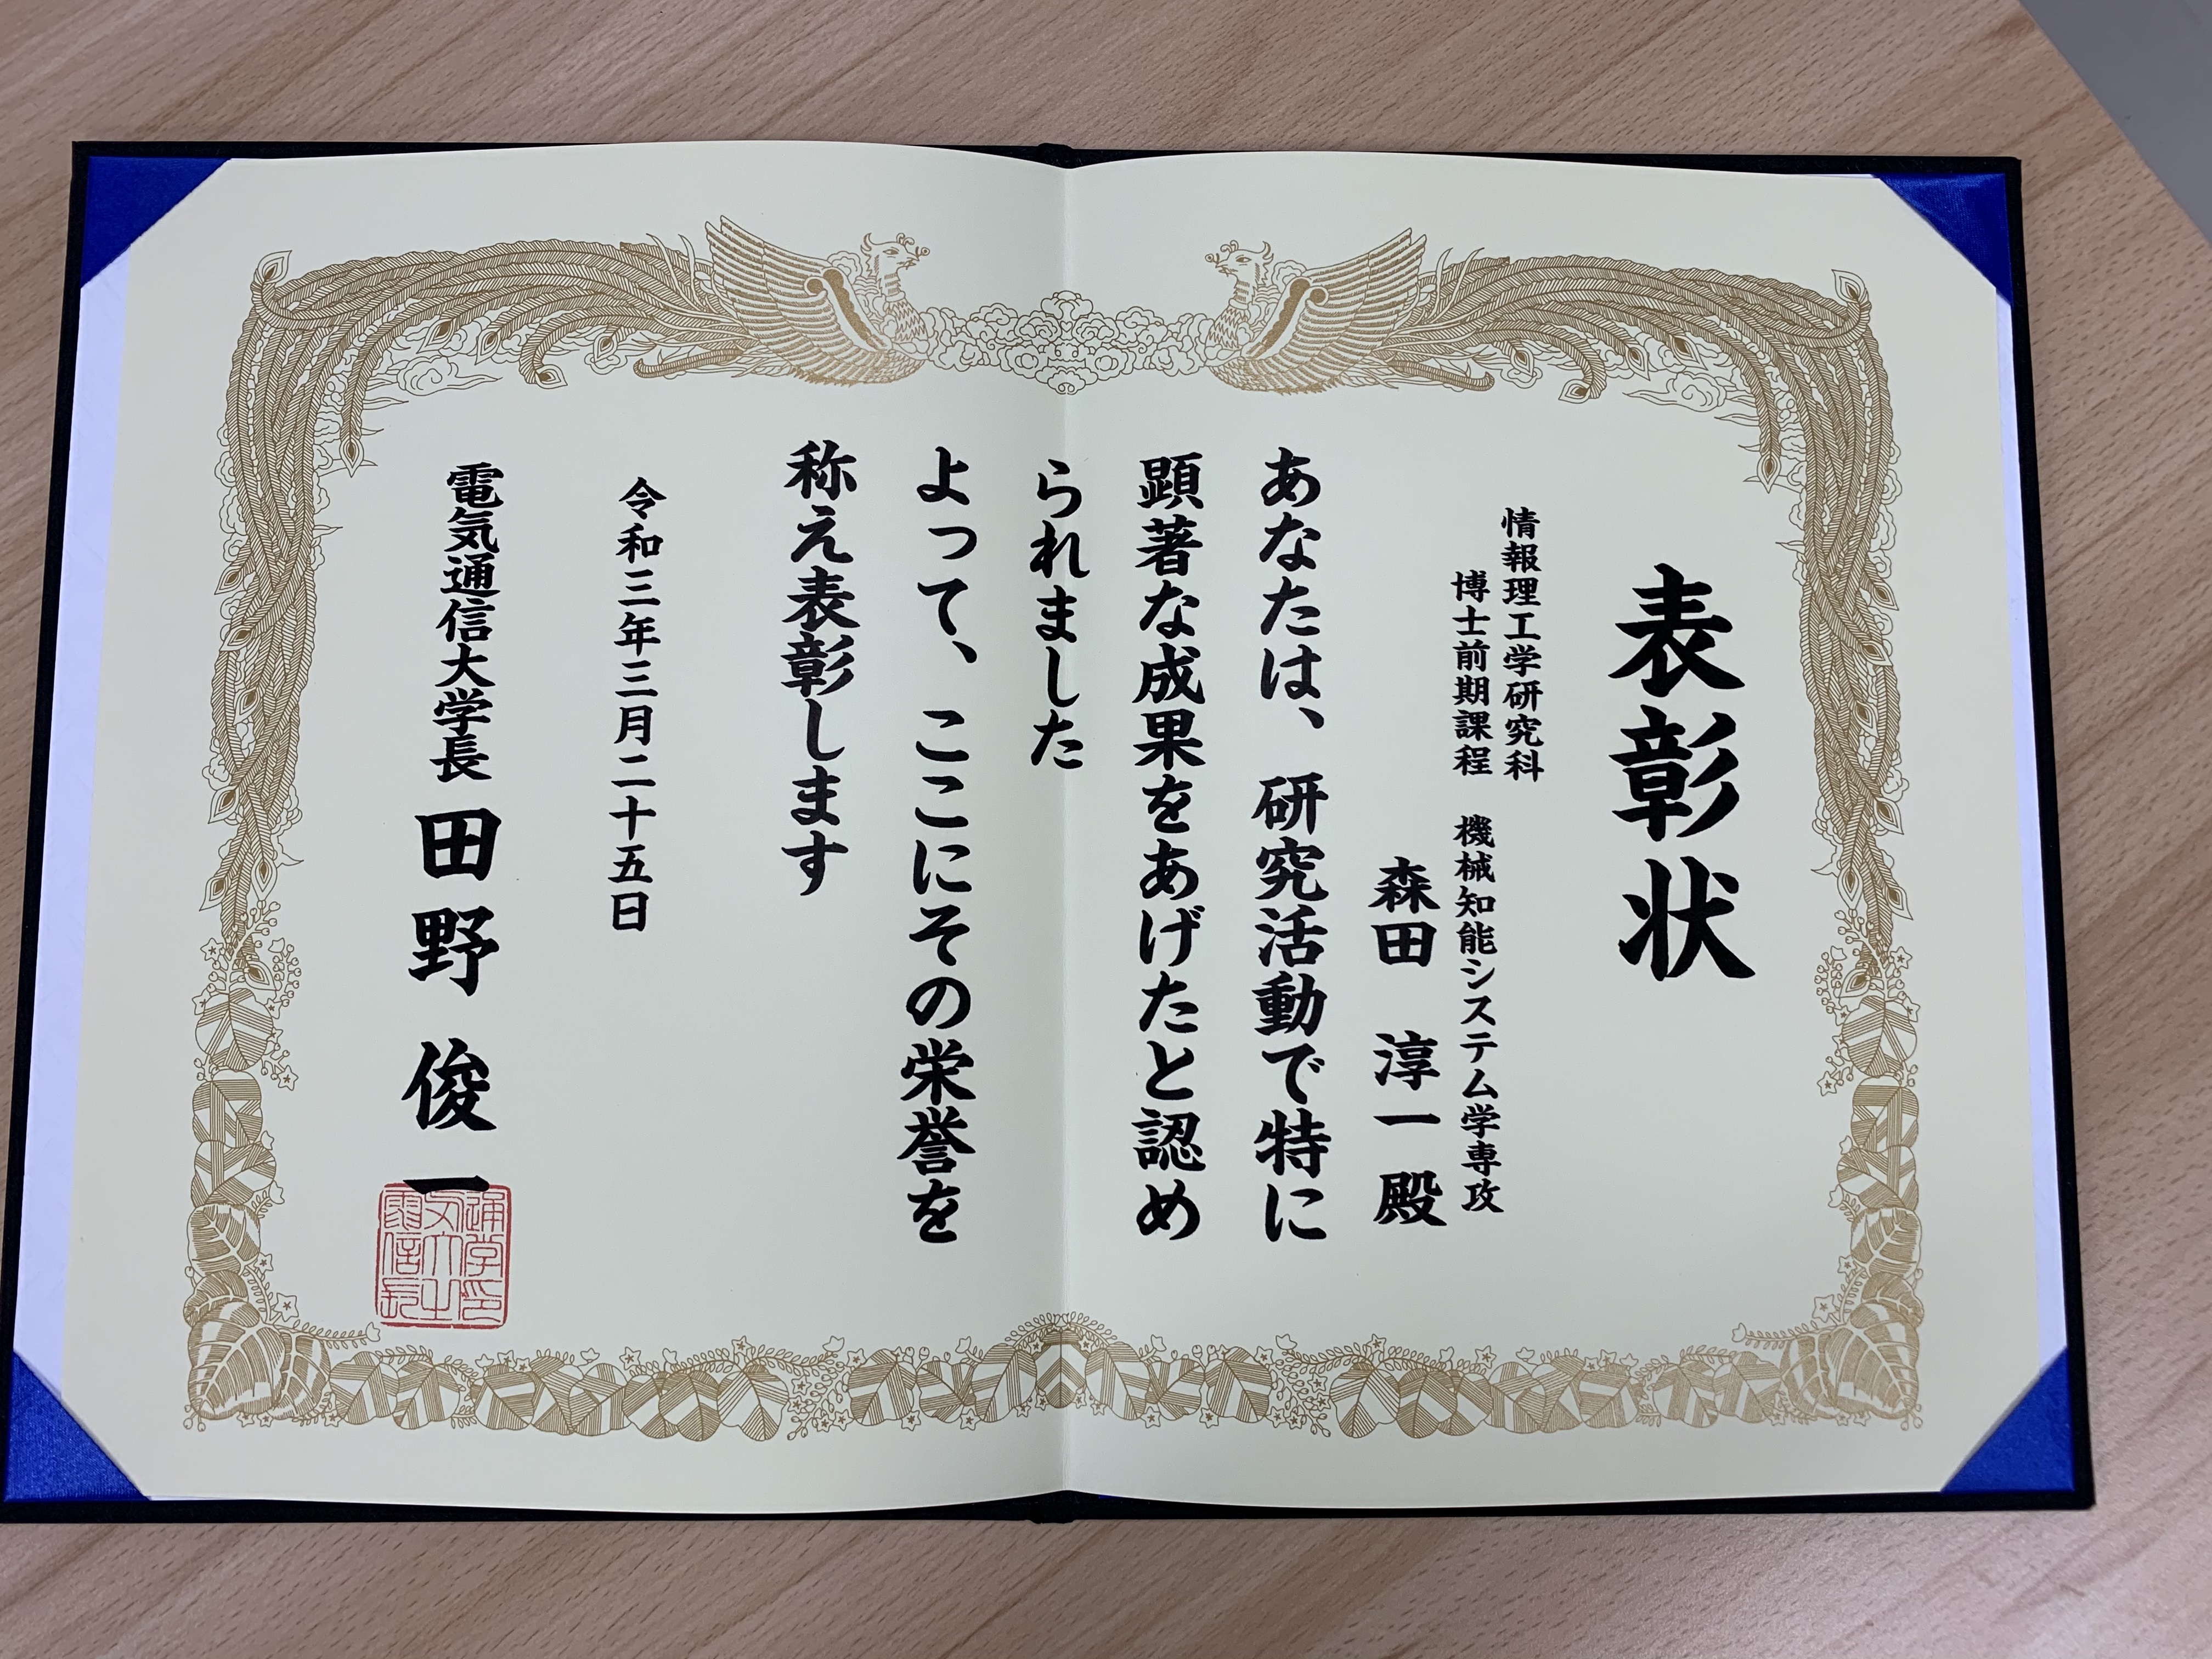 表彰状
情報理工学研究科
博士前期課程 機械知能システム学専攻
森田 淳一 殿
あなたは、研究活動で特に
顕著な成果をあげたと認め
られました
よって、ここにその栄誉を
称え表彰します
令和三年三月二十五日
電気通信大学長 田野 俊一